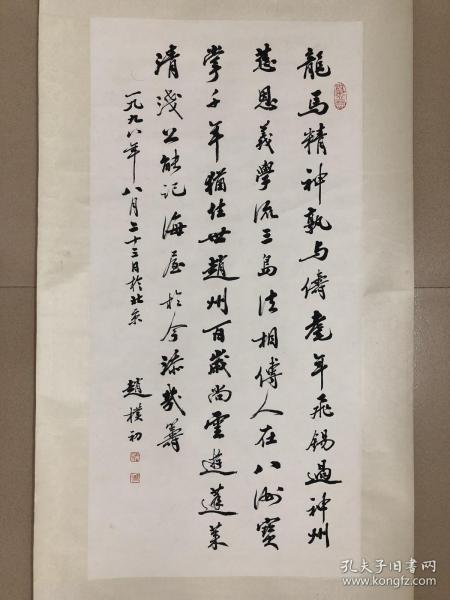 龍馬精神孰与儔耄年飛錫過神州
慈恩義學流三島法相傳人在八洲寶
掌千年猶住世趙州百歲尚雲遊蓬萊
清淺公能記海屋於今添幾籌
一九九八年八月二十三日於北京
趙樸初
孔夫子旧书网
www.kongfz.com